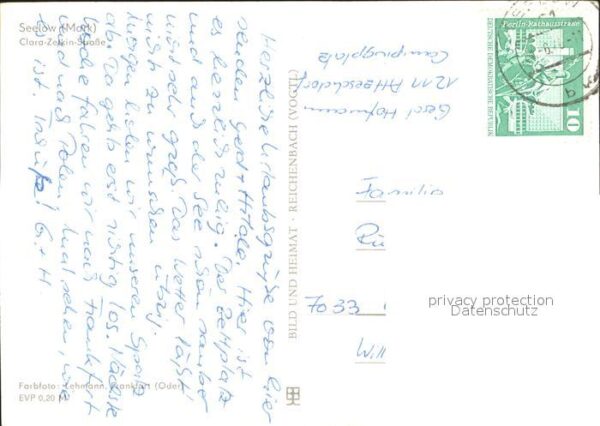 Seelow (Mark)
Clara-Zetkin-Straße
Herzliche Urlaubsgrüße von hier
senden Gerd + Hilde. Hier ist
es herrlich ruhig. Der Zeltplatz
und auch der See schön sauber
nicht sehr groß. Das Wetter läßt
nichts zu wünschen übrig.
Morgen holen wir unseren
ab. Da geht's erst richtig los. Nächste
Woche fahren wir nach Frankfurt
und nach Polen. Mal sehen, wie
es ist. Tschüß! G. + H.
Farbfoto: Lehmann, Frankfurt (Oder)
EVP 0,20 M
BILD UND HEIMAT · REICHENBACH (VOGTL)
Gerd Hofmann
1211 Altzeschdorf
Campingplatz
Berlin-Rathausstraße
DEUTSCHE DEMOKRATISCHE REPUBLIK
10
Fa
Rü
7033
privacy protection
Datenschutz